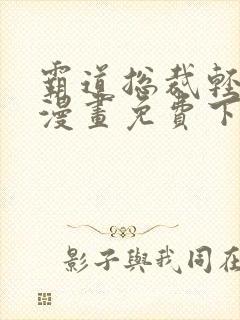 霸道总裁轻
漫畫免費下
影子與我同在